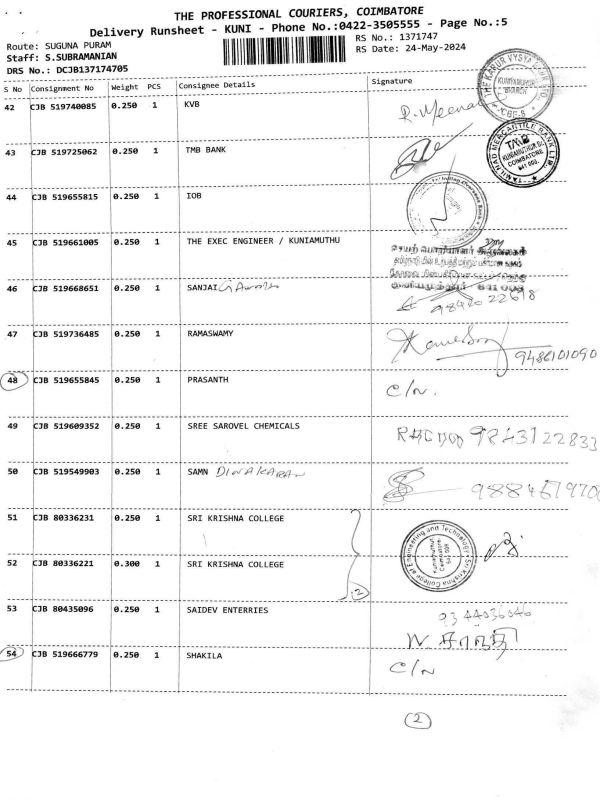 THE PROFESSIONAL COURIERS, COIMBATORE
Delivery Runsheet - KUNI - Phone No.:0422-3505555 - Page No.:5
Route: SUGUNA PURAM RS No.: 1371747
Staff: S.SUBRAMANIAN RS Date: 24-May-2024
DRS No.: DCJB137174705
S No Consignment No Weight PCS Consignee Details Signature
42 CJB 519740085 0.250 1 KVB R. Meena
THE KARUR VYSYA BANK LTD. KUNIAMUTHUR BRANCH CBE-8
43 CJB 519725062 0.250 1 TMB BANK
TAMILNAD MERCANTILE BANK LTD. TMB KUNIAMUTHUR BR. COIMBATORE 641 008.
44 CJB 519655815 0.250 1 IOB
Indian Overseas Bank
45 CJB 519661005 0.250 1 THE EXEC ENGINEER / KUNIAMUTHU
செயற் பொறியாளர்
641 008
46 CJB 519668651 0.250 1 SANJAI
9842022618
47 CJB 519736485 0.250 1 RAMASWAMY
9486101090
48 CJB 519655845 0.250 1 PRASANTH C/N.
49 CJB 519609352 0.250 1 SREE SAROVEL CHEMICALS 9843122833
50 CJB 519549903 0.250 1 SAMN DINAKARAN 9884619708
51 CJB 80336231 0.250 1 SRI KRISHNA COLLEGE
Sri Krishna College of Engineering and Technology Kuniamuthur Coimbatore 641 008
52 CJB 80336221 0.300 1 SRI KRISHNA COLLEGE
2
53 CJB 80435096 0.250 1 SAIDEV ENTERRIES 9344036046
54 CJB 519666779 0.250 1 SHAKILA C/N
2